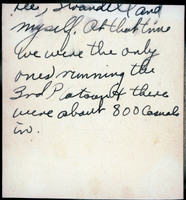 Lee, Swandell and
myself. At that time
we were the only
ones running the
3rd Platoon & there
were about 800 Casuals
in.